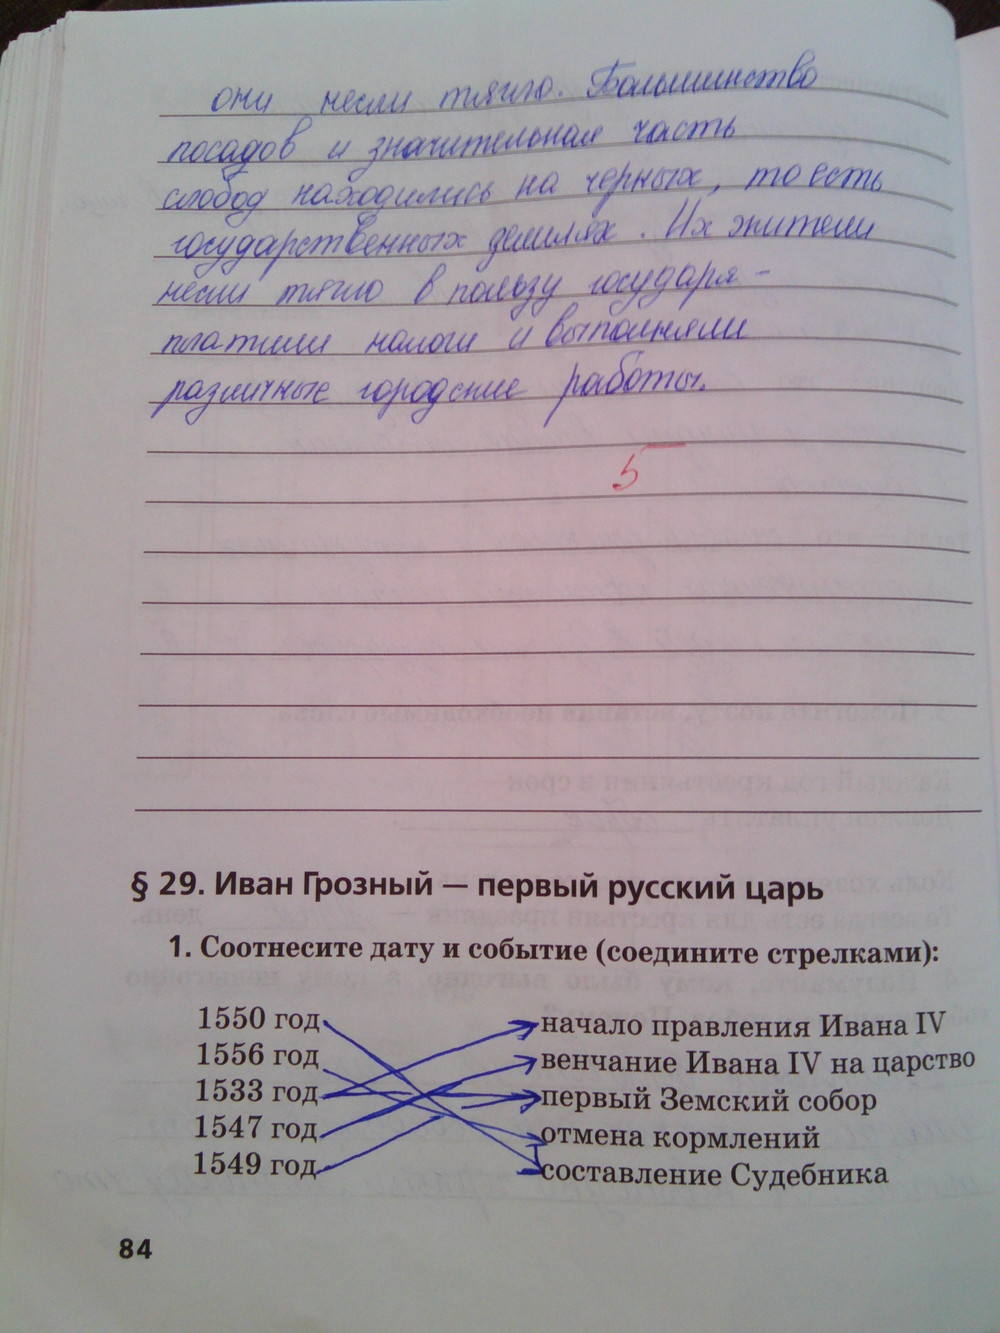 они несли тягло. Большинство
посадов и значительная часть
слобод находились на черных, то есть
государственных землях. Их жители
несли тягло в пользу государя -
платили налоги и выполняли
различные городские работы.
5
§ 29. Иван Грозный — первый русский царь
1. Соотнесите дату и событие (соедините стрелками):
1550 год
1556 год
1533 год
1547 год
1549 год
начало правления Ивана IV
венчание Ивана IV на царство
первый Земский собор
отмена кормлений
составление Судебника
84